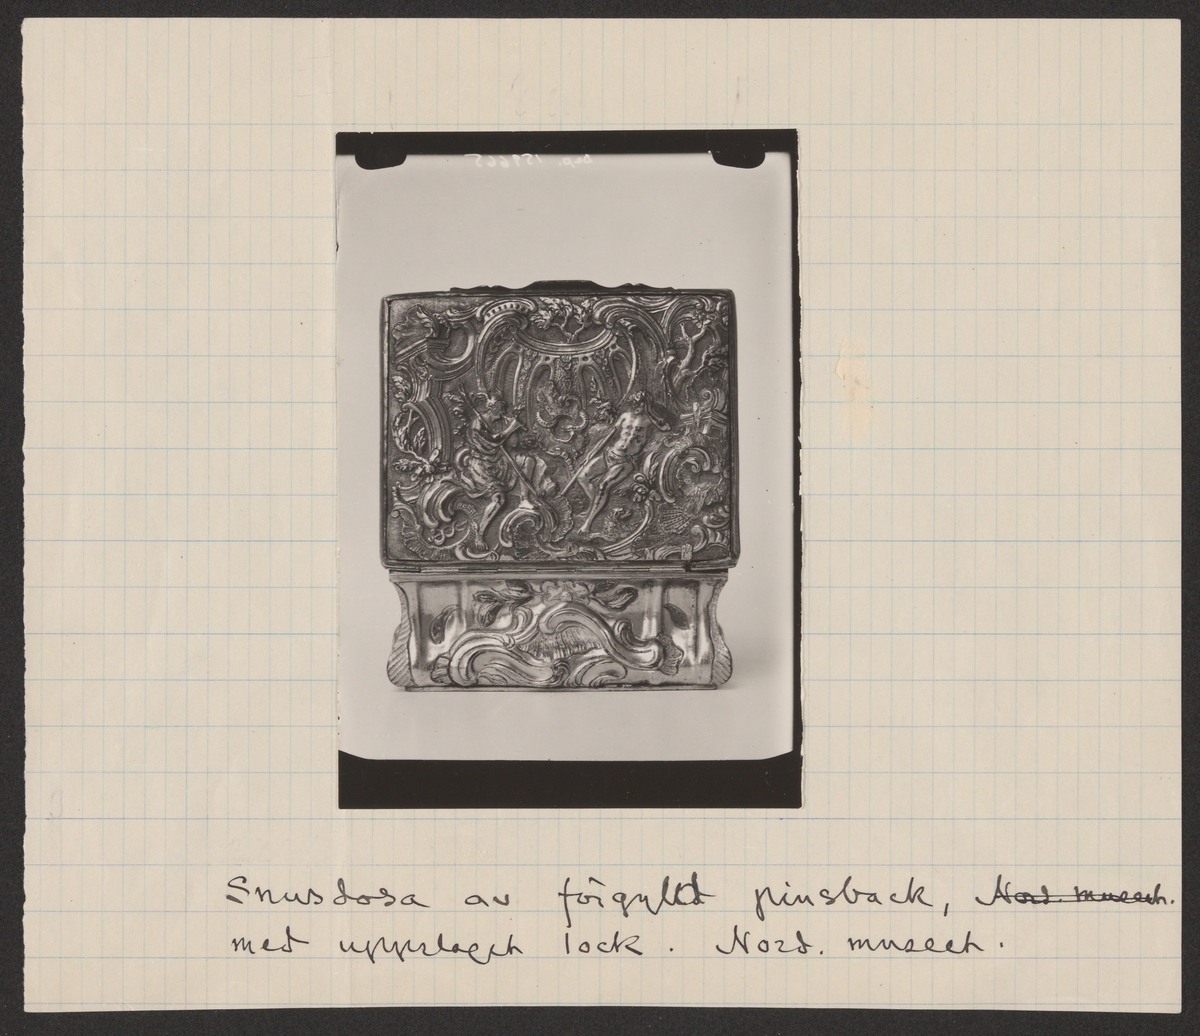 Dep. 159665
Snusdosa av förgylld pinsback, Nord. museet.
med uppslaget lock. Nord. museet.